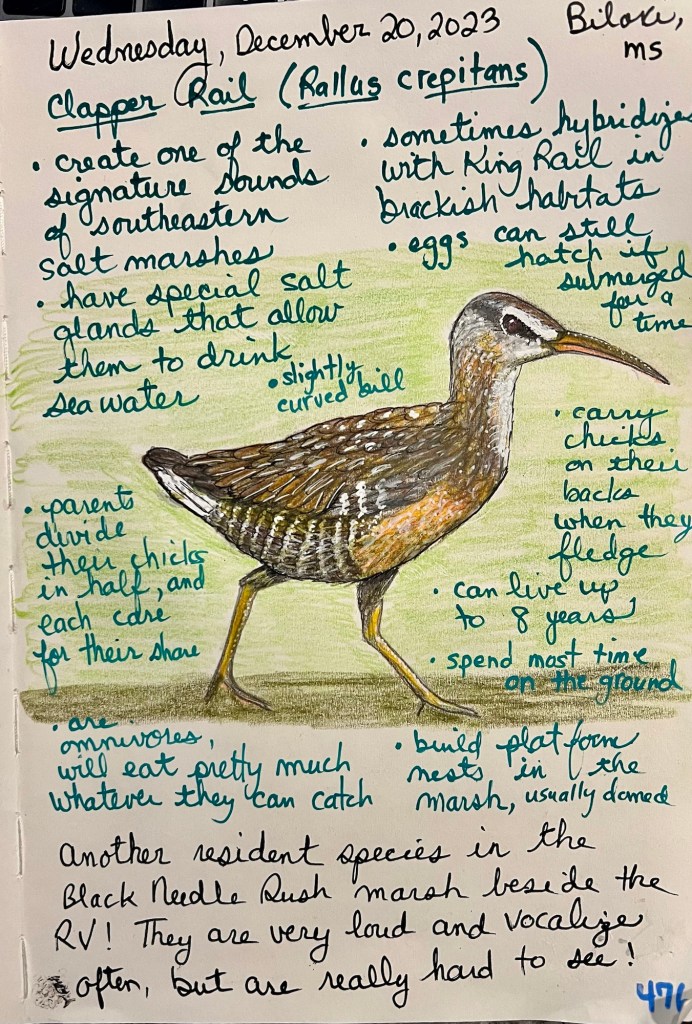 Wednesday, December 20, 2023
Biloxi,
MS
Clapper Rail (Rallus crepitans)
• create one of the
signature sounds
of southeastern
salt marshes
• have special salt
glands that allow
them to drink
sea water
• sometimes hybridizes
with King Rail in
brackish habitats
• eggs can still
hatch if
submerged
for a
time
• slightly
curved bill
• carry
chicks
on their
backs
when they
fledge
• parents
divide
their chicks
in half, and
each care
for their share
• can live up
to 8 years
• spend most time
on the ground
• are
omnivores,
will eat pretty much
whatever they can catch
• build platform
nests in the
marsh, usually domed
Another resident species in the
Black Needle Rush marsh beside the
RV! They are very loud and vocalize
often, but are really hard to see!
471